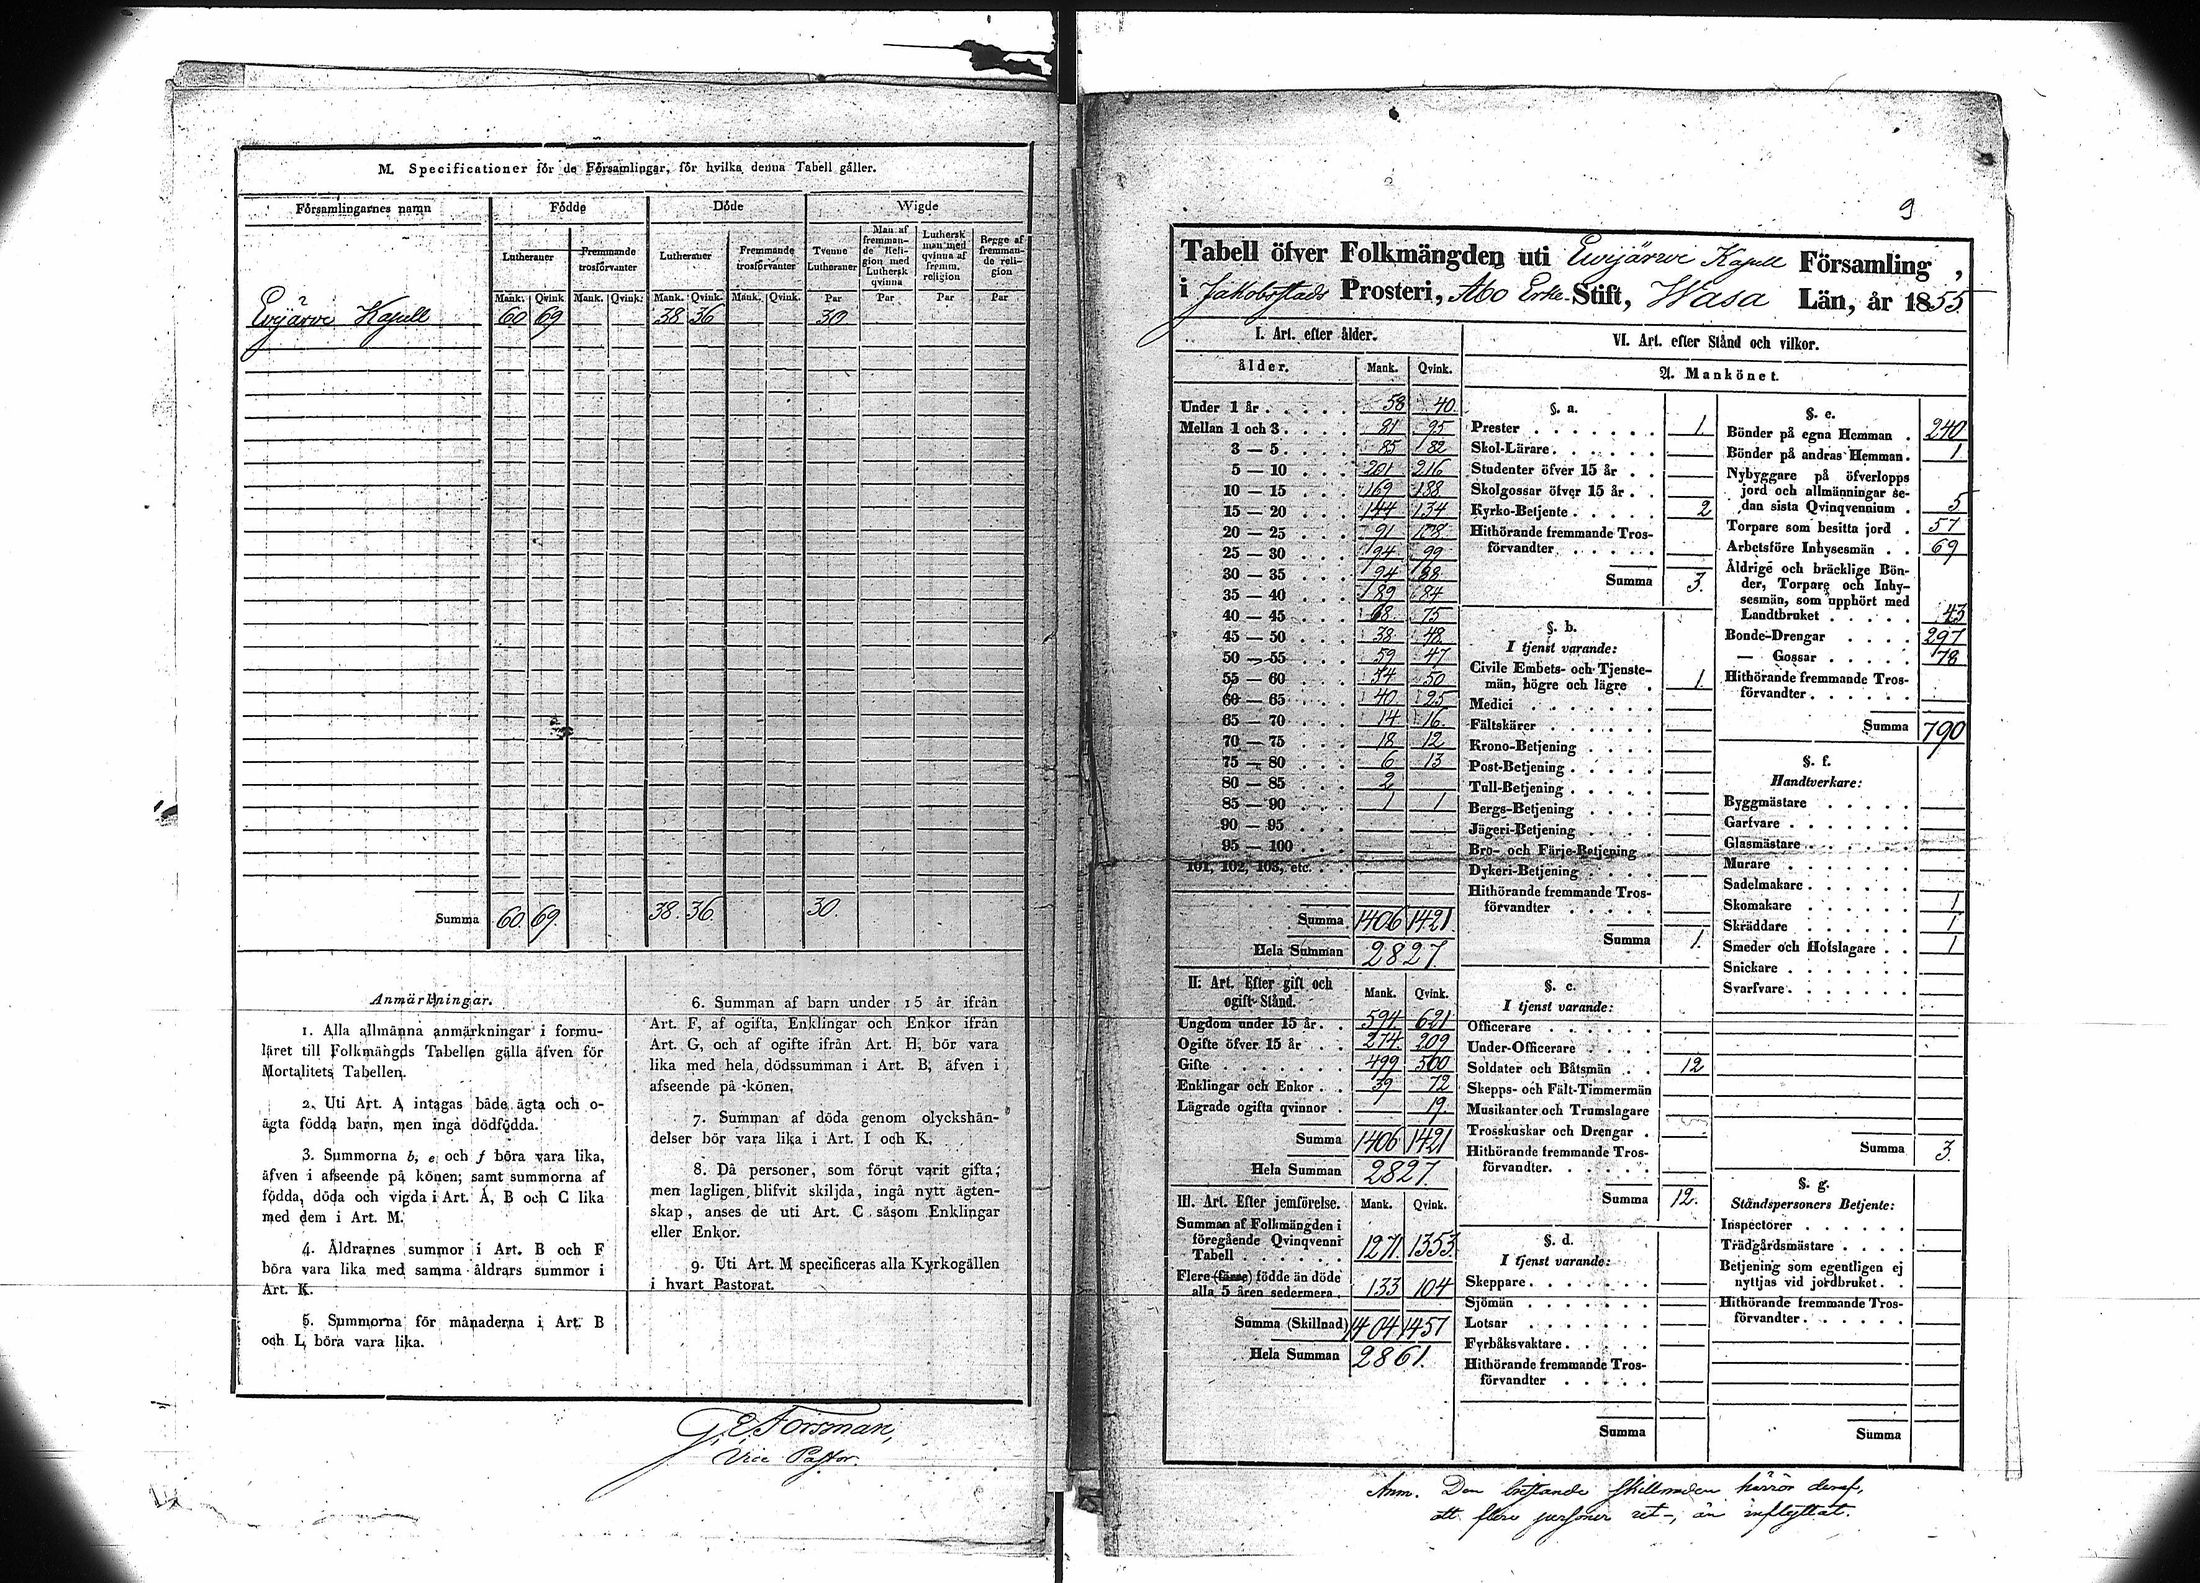 M. Specificationer för de Församlingar, för hvilka denna Tabell gäller.
Församlingarnes namn
Födde
Döde
Wigde
Lutheraner
Fremmande trosförvanter
Lutheraner
Fremmande trosförvanter
Tvenne Lutheraner
Man af fremmande Religion med Luthersk qvinna
Luthersk man med qvinna af fremm. religion
Begge af fremmande religion
Mank. Qvink Mank. Qvink. Mank. Qvink. Mank. Qvink. Par Par Par Par
Evijärvi Kapell 60 69 38 36 30
Summa 60. 69. 38. 36. 30.
Anmärkningar.
1. Alla allmänna anmärkningar i formu-
läret till Folkmängds Tabellen gälla äfven för
Mortalitets Tabellen.
2. Uti Art. A intagas både ägta och o-
ägta födda barn, men inga dödfödda.
3. Summorna b, e och f böra vara lika,
äfven i afseende på könen; samt summorna af
födda, döda och vigda i Art. A, B och C lika
med dem i Art. M.
4. Åldrarnes summor i Art. B och F
böra vara lika med samma åldrars summor i
Art. K.
5. Summorna för månaderna i Art. B
och L böra vara lika.
6. Summan af barn under 15 år ifrån
Art. F, af ogifta, Enklingar och Enkor ifrån
Art. G, och af ogifte ifrån Art. H, bör vara
lika med hela dödssumman i Art. B, äfven i
afseende på könen.
7. Summan af döda genom olyckshän-
delser bör vara lika i Art. I och K.
8. Då personer, som förut varit gifta,
men lagligen blifvit skiljda, ingå nytt ägten-
skap, anses de uti Art. C såsom Enklingar
eller Enkor.
9. Uti Art. M specificeras alla Kyrkogällen
i hvart Pastorat.
Forsman,
Vice Pastor.
9
Tabell öfver Folkmängden uti Ewijärwi Kapell Församling,
i Jakobstads Prosteri, Åbo Erke-Stift, Wasa Län, år 1855
I. Art. efter ålder.
ålder. Mank. Qvink.
Under 1 år 58 40
Mellan 1 och 3 81 95
3 — 5 85 82
5 — 10 201 216
10 — 15 169 188
15 — 20 144 134
20 — 25 91 108
25 — 30 94 99
30 — 35 94 88
35 — 40 89 84
40 — 45 68 75
45 — 50 38 48
50 — 55 59 47
55 — 60 54 50
60 — 65 40 25
65 — 70 14 16
70 — 75 18 12
75 — 80 6 13
80 — 85 2
85 — 90 1 1
90 — 95
95 — 100
101, 102, 103, etc.
Summa 1406 1421
Hela Summan 2827.
II. Art. Efter gift och ogift Stånd. Mank. Qvink.
Ungdom under 15 år 594 621
Ogifte öfver 15 år 274 209
Gifte 499 500
Enklingar och Enkor 39 72
Lägrade ogifta qvinnor 19.
Summa 1406 1421
Hela Summan 2827.
III. Art. Efter jemförelse. Mank. Qvink.
Summan af Folkmängden i
föregående Qvinqvenni
Tabell 1271. 1353
Flere (färre) födde än döde
alla 5 åren sedermera 133 104
Summa (Skillnad) 1404 1457
Hela Summan 2861.
VI. Art. efter Stånd och vilkor.
A. Mankönet.
§. a.
Prester 1.
Skol-Lärare
Studenter öfver 15 år
Skolgossar öfver 15 år
Kyrko-Betjente 2
Hithörande fremmande Tros-
förvandter
Summa 3.
§. b.
I tjenst varande:
Civile Embets- och Tjenste-
män, högre och lägre 1.
Medici
Fältskärer
Krono-Betjening
Post-Betjening
Tull-Betjening
Bergs-Betjening
Jägeri-Betjening
Bro- och Färje-Betjening
Dykeri-Betjening
Hithörande fremmande Tros-
förvandter
Summa 1.
§. c.
I tjenst varande:
Officerare
Under-Officerare
Soldater och Båtsmän 12
Skepps- och Fält-Timmermän
Musikanter och Trumslagare
Trosskuskar och Drengar
Hithörande fremmande Tros-
förvandter
Summa 12.
§. d.
I tjenst varande:
Skeppare
Sjömän
Lotsar
Fyrbåksvaktare
Hithörande fremmande Tros-
förvandter
Summa
§. e.
Bönder på egna Hemman 240
Bönder på andras Hemman 1.
Nybyggare på öfverlopps
jord och allmänningar se-
dan sista Qvinqvennium 5.
Torpare som besitta jord 57
Arbetsföre Inhysesmän 69
Åldrige och bräcklige Bön-
der, Torpare och Inhy-
sesmän, som upphört med
Landtbruket 43
Bonde-Drengar 297
— Gossar 78
Hithörande fremmande Tros-
förvandter
Summa 790
§. f.
Handtverkare:
Byggmästare
Garfvare
Glasmästare
Murare
Sadelmakare
Skomakare 1
Skräddare 1
Smeder och Hofslagare 1
Snickare
Svarfvare
Summa 3.
§. g.
Ståndspersoners Betjente:
Inspectorer
Trädgårdsmästare
Betjening som egentligen ej
nyttjas vid jordbruket
Hithörande fremmande Tros-
förvandter
Summa
Anm. Den befintande skillnaden härrör deraf,
att flere personer ut-, än inflyttat.